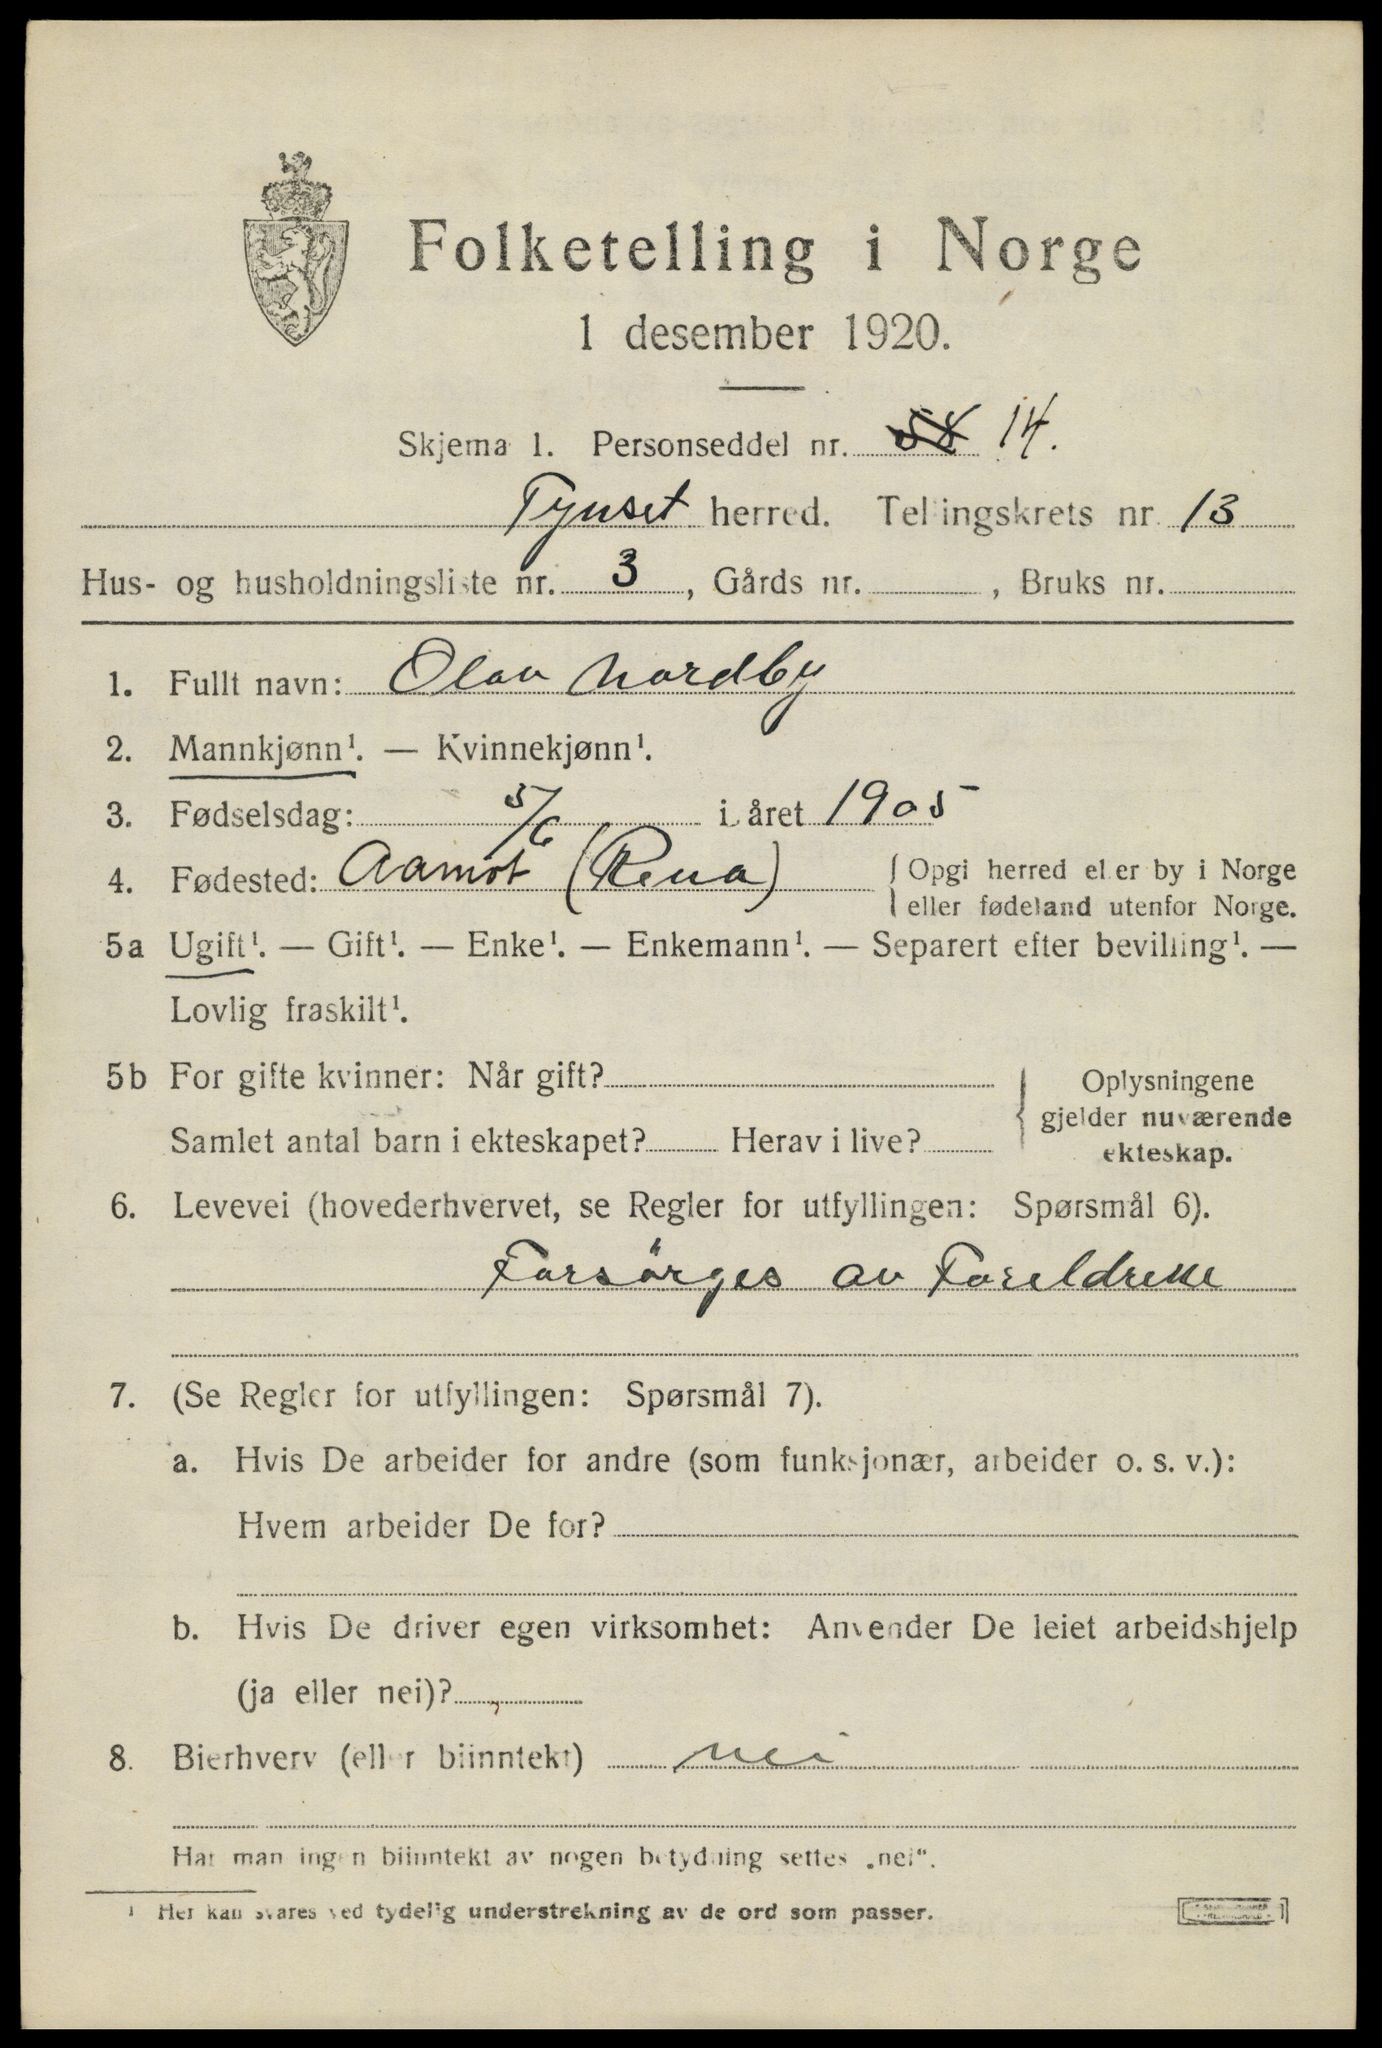 Folketelling i Norge
1 desember 1920.
Skjema 1. Personseddel nr. 58 14.
Tynset herred. Tellingskrets nr. 13
Hus- og husholdningsliste nr. 3, Gårds nr. , Bruks nr.
1. Fullt navn: Olav Nordby
2. Mannkjønn¹. — Kvinnekjønn¹.
3. Fødselsdag: 5/6 i året 1905
4. Fødested: Aamot (Rena) { Opgi herred eller by i Norge
eller fødeland utenfor Norge.
5a Ugift¹. — Gift¹. — Enke¹. — Enkemann¹. — Separert efter bevilling¹. —
Lovlig fraskilt¹.
5b For gifte kvinner: Når gift? Oplysningene
gjelder nuværende
Samlet antal barn i ekteskapet? Herav i live?
ekteskap.
6. Levevei (hovederhvervet, se Regler for utfyllingen: Spørsmål 6).
Forsörges av Foreldrene
7. (Se Regler for utfyllingen: Spørsmål 7).
a. Hvis De arbeider for andre (som funksjonær, arbeider o. s. v.):
Hvem arbeider De for?
b. Hvis De driver egen virksomhet: Anvender De leiet arbeidshjelp
(ja eller nei)?
8. Bierhverv (eller biinntekt) nei
Har man ingen biinntekt av nogen betydning settes „nei“.
¹ Her kan svares ved tydelig understrekning av de ord som passer.